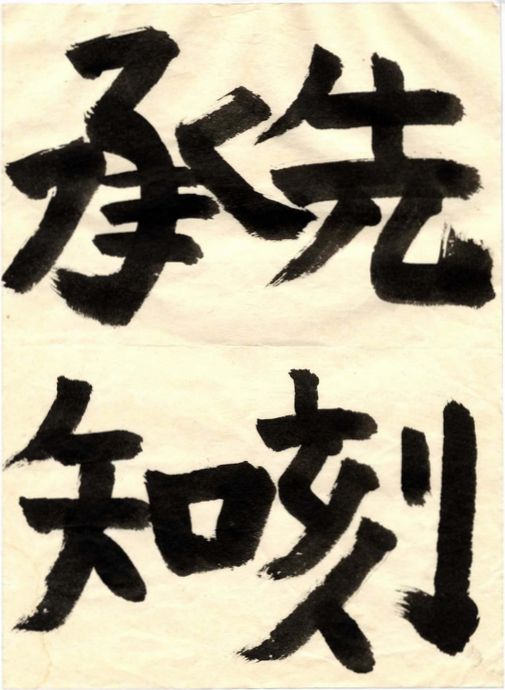 先刻
承知